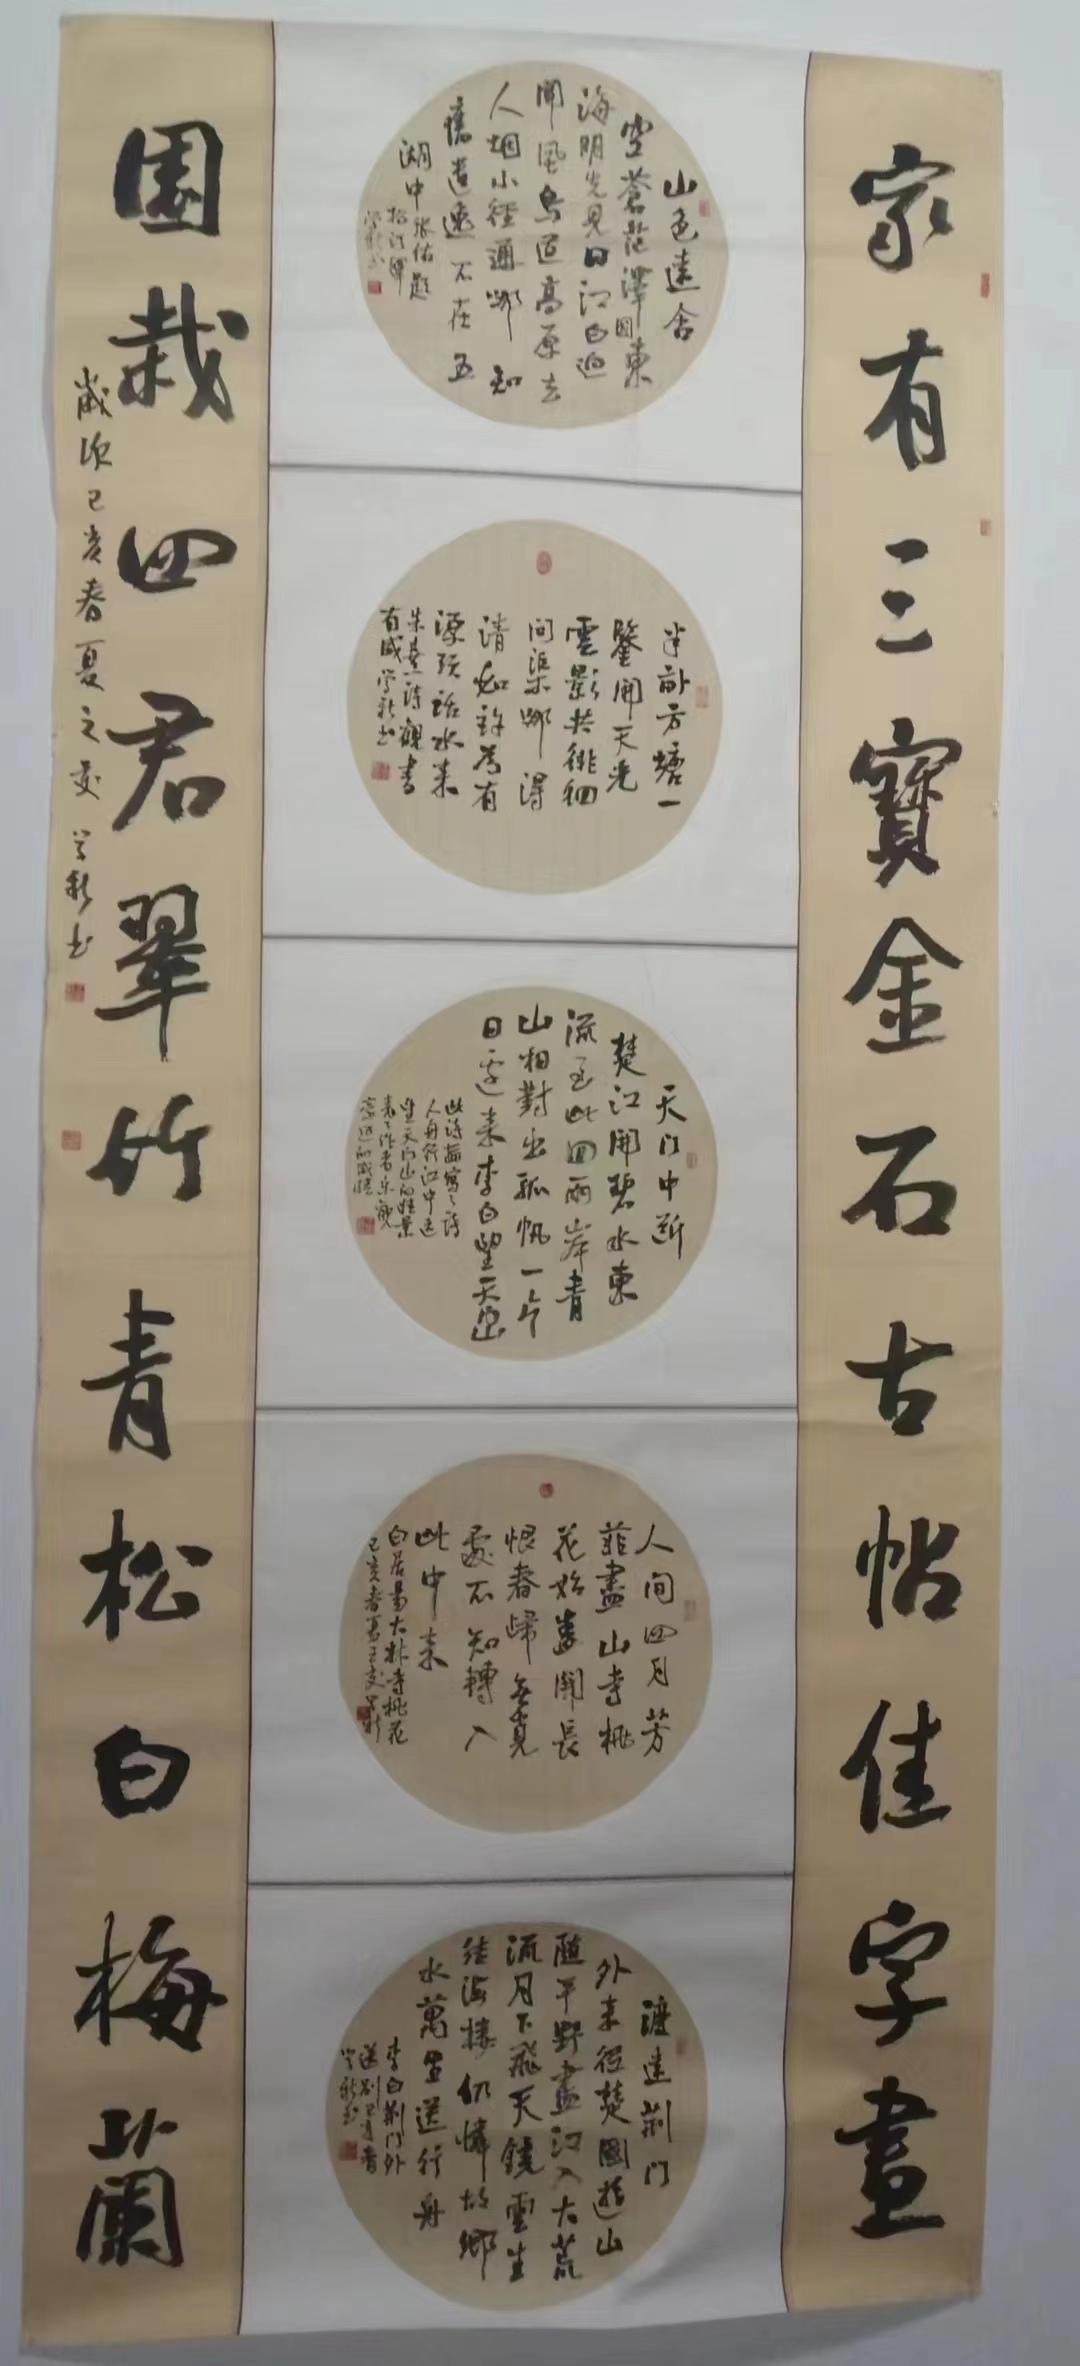 家有三寳金石古帖佳字畫
山色遠含
空蒼茫澤國東
海明先見日江白迥
聞風鳥道高原去
人烟小徑通那知
舊遺逸不在五
湖中張佑題
松汀驛
半畝方塘一
鑒開天光
雲影共徘徊
问渠那得
清如許為有
源頭活水来
朱熹詩觀書
有感學新书
天门中断
楚江開碧水東
流至此回兩岸青
山相對出孤帆一片
日邊来李白望天门山
此詩描寫了詩
人舟行江中遠
望天门山的佳景
表了作者樂觀
豪迈的感情
人间四月芳
菲盡山寺桃
花始盛開長
恨春歸無覓
處不知轉入
此中来
白居易大林寺桃花
己亥春夏之交学新
渡遠荆门
外来從楚國遊山
隨平野盡江入大荒
流月下飛天鏡雲生
结海楼仍憐故鄉
水萬里送行舟
李白荆门外
送别己亥春
学新书
園栽四君翠竹青松白梅蘭
歲次己亥春夏之交 学新书